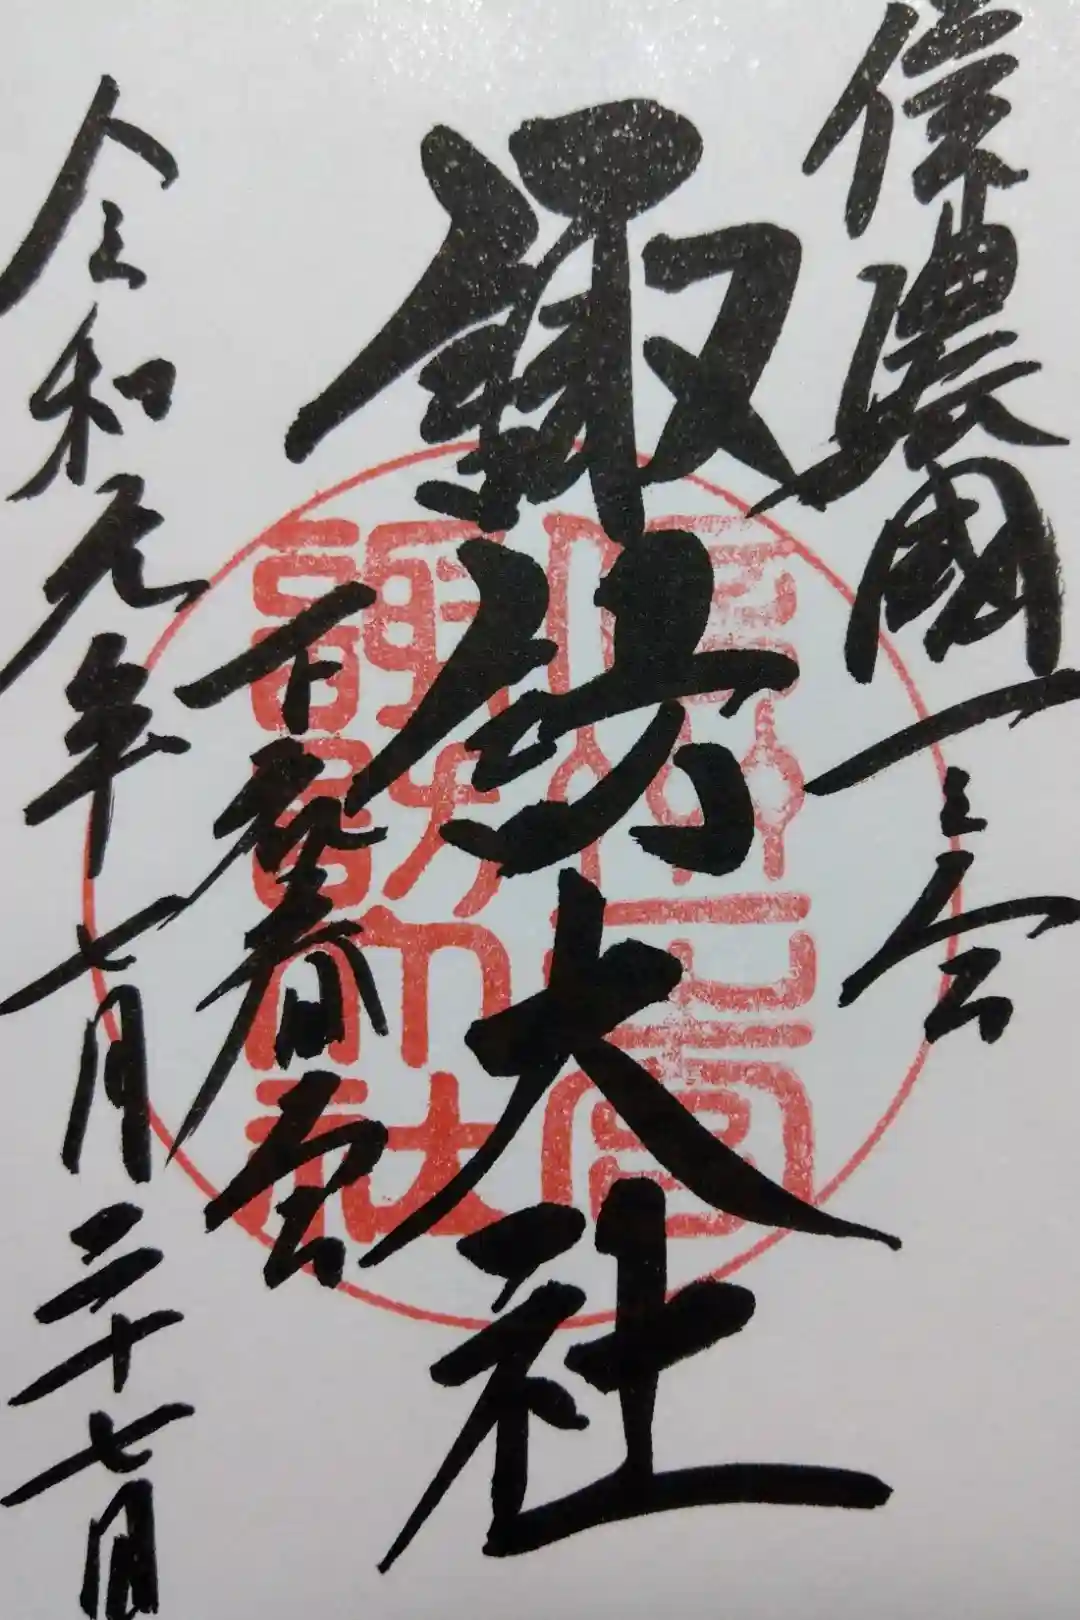 信濃國一之宮
諏訪大社
下社春宮
令和元年七月二十七日